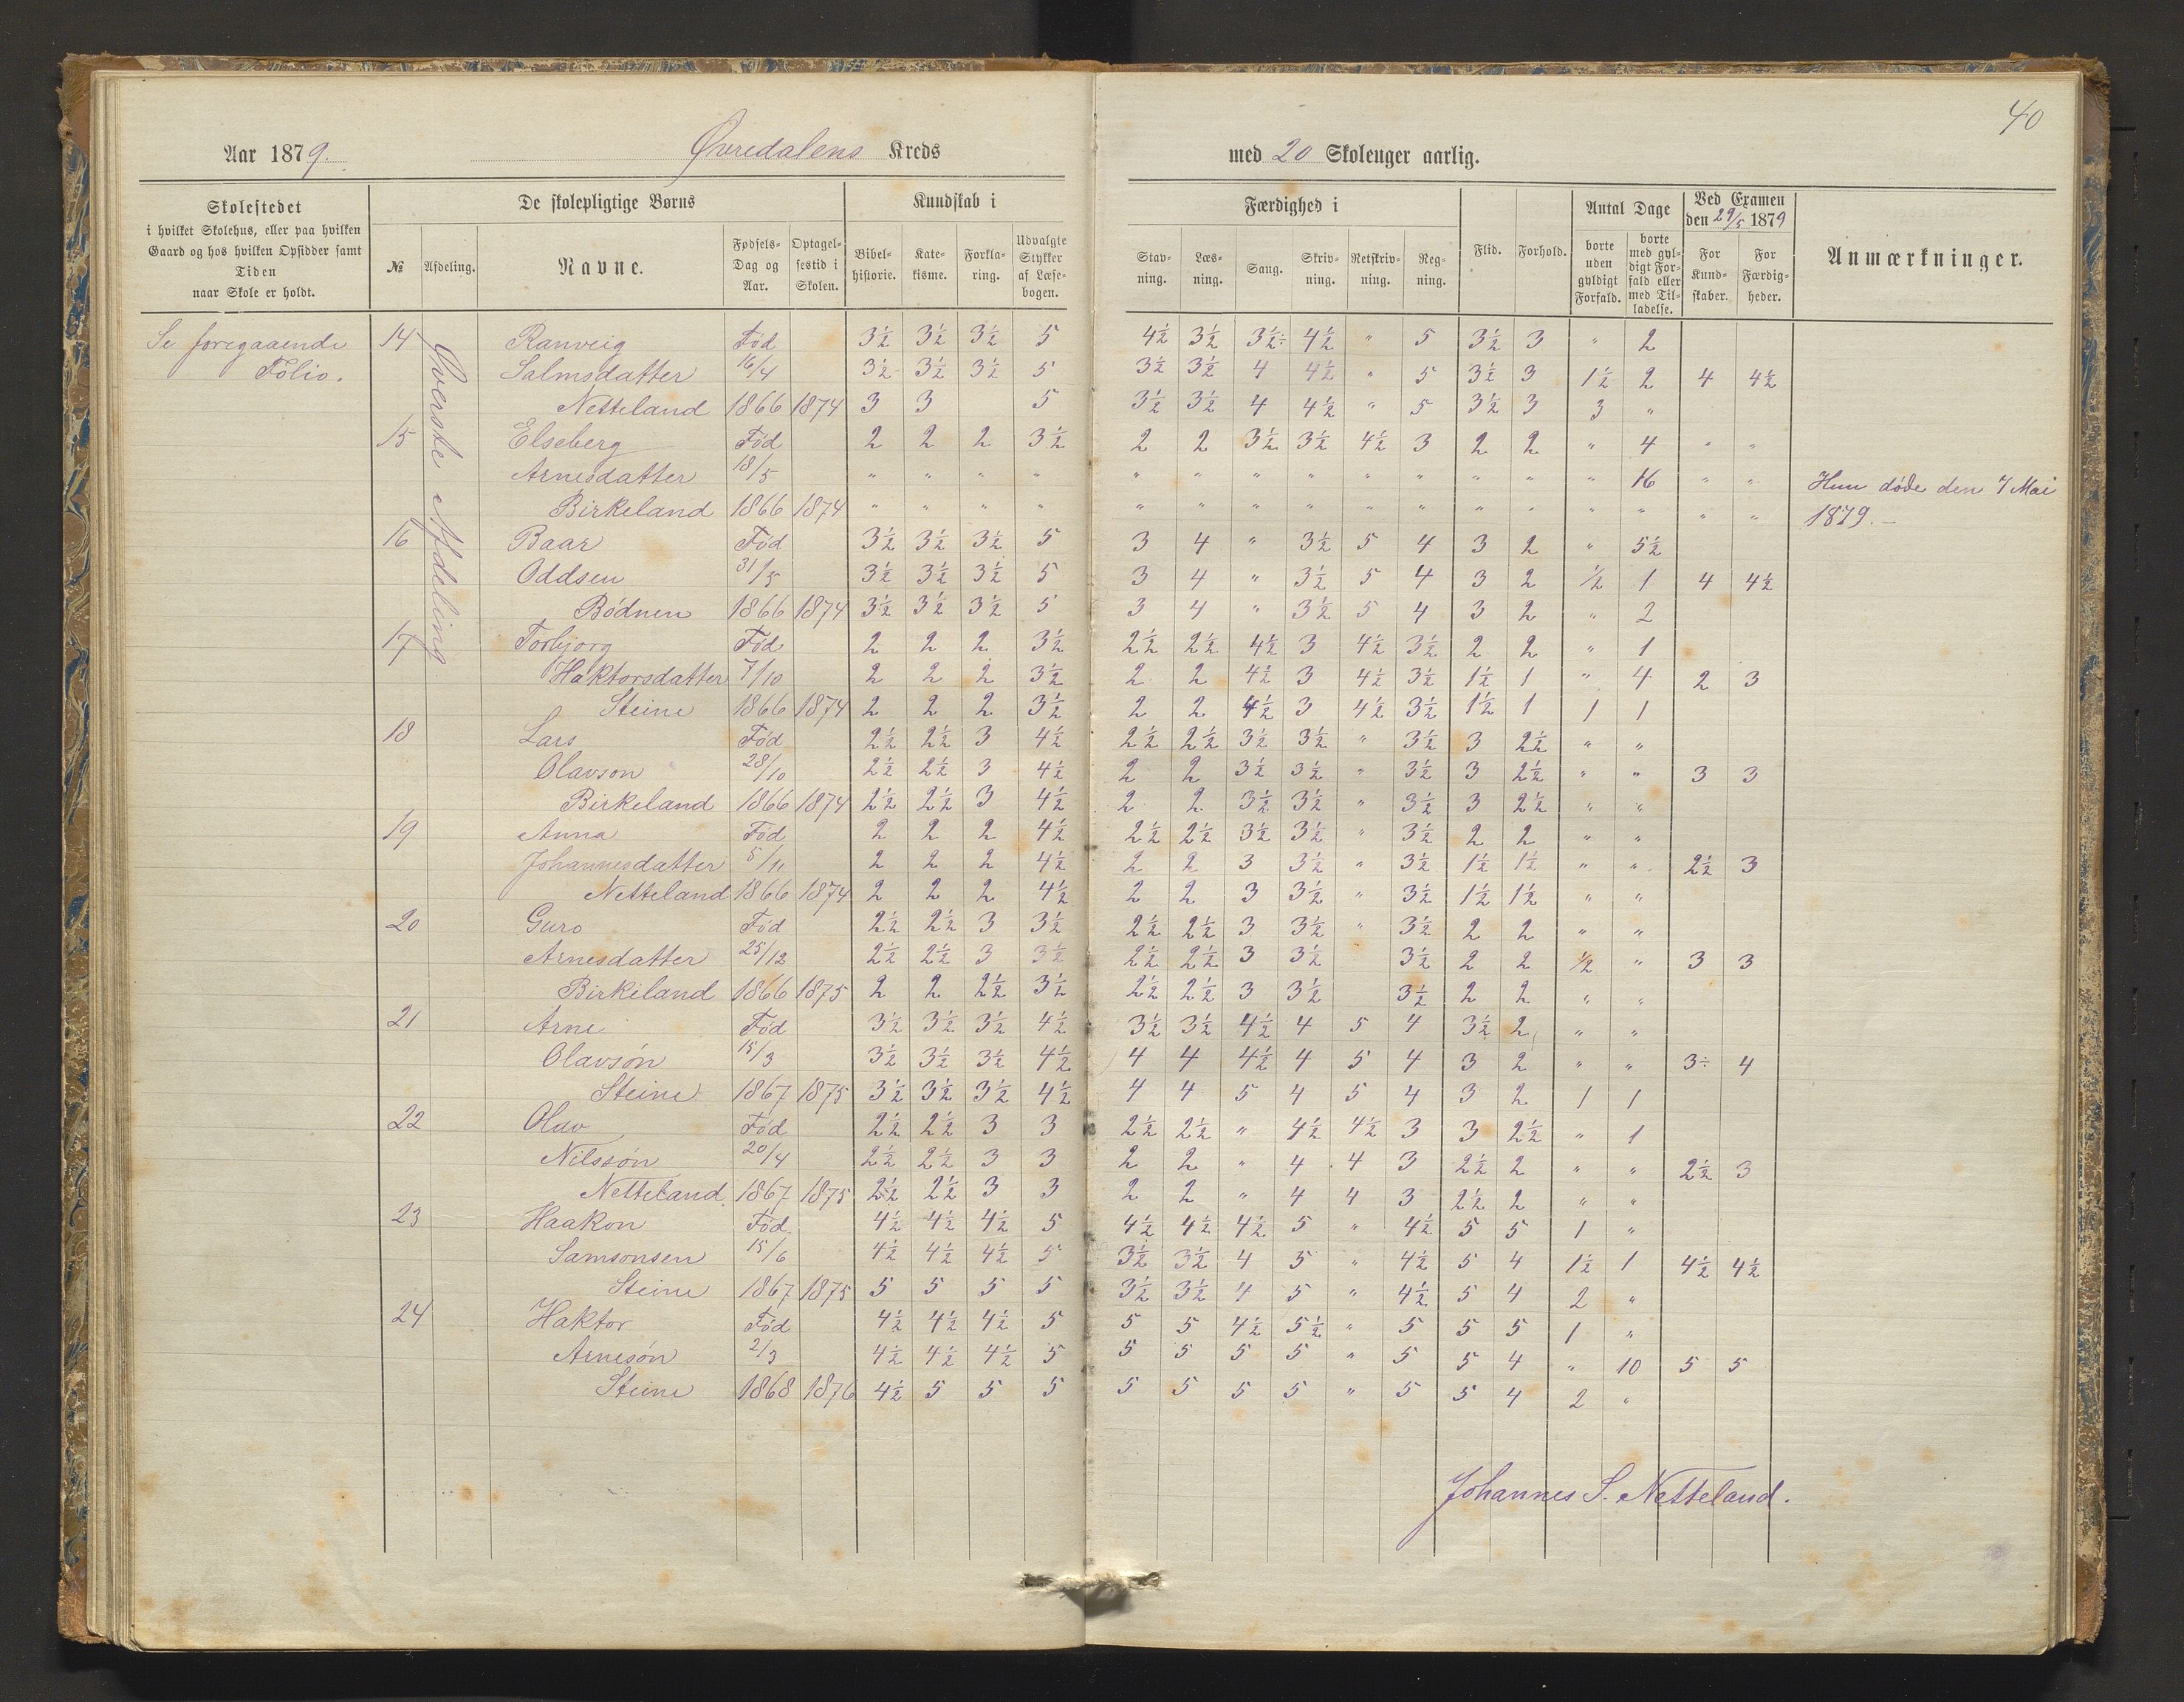 40
Aar 1879. Øvredalens Kreds med 20 Skoleuger aarlig.
Skolestedet
i hvilket Skolehus, eller paa hvilken
Gaard og hos hvilken Opsidder samt
Tiden
naar Skole er holdt.
De skolepligtige Børns
№ Afdeling. Navne. Fødsels-Dag og Aar. Optagel-sestid i Skolen.
Kundskab i
Bibel-historie. Kate-kisme. Forkla-ring. Udvalgte Stykker af Læse-bogen.
Færdighed i
Stav-ning. Læs-ning. Sang. Skriv-ning. Retskriv-ning. Reg-ning.
Flid. Forhold.
Antal Dage
borte uden gyldigt Forfald. borte med gyl-digt For-fald eller med Til-ladelse.
Ved Examen den 29/5 1879
For Kund-skaber. For Færdig-heder.
Anmærkninger.
Se foregaaende
Folio.
Øverste Afdeling
14 Ranveig Fød 3½ 3½ 3½ 5 4½ 3½ 3½÷ 4½ " 5 3½ 3 " 2
Salmsdatter 16/4 3½ 3½ 3½ 5 3½ 3½ 4 4½ " 5 3½ 3 1½ 2 4 4½
Netteland 1866 1874 3 3 5 3½ 3½ 4 4½ " 5 3½ 3 3 "
15 Elseberg Fød 2 2 2 3½ 2 2 3½ 3½ 4½ 3 2 2 " 4 " "
Arnesdatter 18/5 " " " " " " " " " " " " " 16 " " Hun døde den 7 Mai
Birkeland 1866 1874 " " " " " " " " " " " " " " " " 1879.-
16 Baar Fød 3½ 3½ 3½ 5 3 4 " 3½ 5 4 3 2 " 5½
Oddsen 31/5 3½ 3½ 3½ 5 3 4 " 3½ 5 4 3 2 ½ 1 4 4½
Bødnen 1866 1874 3½ 3½ 3½ 5 3 4 " 3½ 5 4 3 2 " 2
17 Torbjørg Fød 2 2 2 3½ 2½ 2½ 4½ 3 4½ 3½ 2 2 " 1
Haktorsdatter 7/10 2 2 2 3½ 2 2 4½ 3 4½ 3½ 1½ 1 " 4 2 3
Steine 1866 1874 2 2 2 3½ 2 2 4½ 3 4½ 3½ 1½ 1 1 1
18 Lars Fød 2½ 2½ 3 4½ 2½ 2½ 3½ 3½ " 3½ 3 2½ " "
Olavson 28/10 2½ 2½ 3 4½ 2 2 3½ 3½ " 3½ 3 2½ " " 3 3
Birkeland 1866 1874 2½ 2½ 3 4½ 2 2 3½ 3½ " 3½ 3 2½ " "
19 Anna Fød 2 2 2 4½ 2½ 2½ 3½ 3½ " 3½ 2 2 " "
Johannesdatter 5/11 2 2 2 4½ 2 2 3 3½ " 3½ 1½ 1½ " " 2½ 3
Netteland 1866 1874 2 2 2 4½ 2 2 3 3½ " 3½ 1½ 1½ " "
20 Guro Fød 2½ 2½ 3 3½ 2½ 2½ 3 3½ " 3½ 2 2 " "
Arnesdatter 25/12 2½ 2½ 3 3½ 2½ 2½ 3 3½ 3½ 2 2 ½ " 3 3
Birkeland 1866 1875 2 2 2½ 3½ 2½ 2½ 3 3½ 3½ 2 2 " "
21 Arne Fød 3½ 3½ 3½ 4½ 3½ 3½ 4½ 4 5 4 3½ 2 " "
Olavsøn 15/3 3½ 3½ 3½ 4½ 4 4 4½ 4 5 4 3 2 " " 3÷ 4
Steine 1867 1875 3½ 3½ 3½ 4½ 4 4 5 4 5 4 3 2 1 1
22 Olav Fød 2½ 2½ 3 3 2½ 2½ " 4½ 4½ 3 3 2½ " 1
Nilssøn 20/4 2½ 2½ 3 3 2 2 " 4 4 3 2½ 2 " " 2½ 3
Netteland 1867 1875 2½ 2½ 3 3 2 2 " 4 4 3 2½ 2 " "
23 Haakon Fød 4½ 4½ 4½ 5 4½ 4½ 4½ 5 " 4½ 5 5 1 "
Samsonsen 15/6 4½ 4½ 4½ 5 3½ 3½ 4 5 " 4½ 5 4 1½ 1 4½ 4½
Steine 1867 1875 5 5 5 5 3½ 3½ 4 5 " 4½ 5 4 2 "
24 Haktor Fød 4½ 4½ 4½ 5 5 5 4½ 5½ " 5 5 5 1 "
Arnesøn 2/3 4½ 4½ 4½ 5 5 5 5 5 " 5 5 4 " 10 5 5
Steine 1868 1876 4½ 5 5 5 5 5 5 5 " 5 5 4 2 "
Johannes S. Netteland.